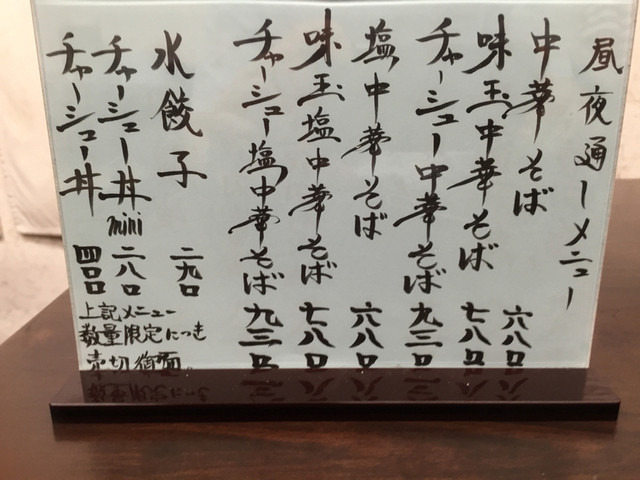 昼夜通しメニュー
中華そば 六八〇
味玉中華そば 七八〇
チャーシュー中華そば 九三〇
塩中華そば 六八〇
味玉塩中華そば 七八〇
チャーシュー塩中華そば 九三〇
水餃子 二九〇
チャーシュー丼mini 二八〇
チャーシュー丼 四〇〇
上記メニュー
数量限定につき
売切御免。